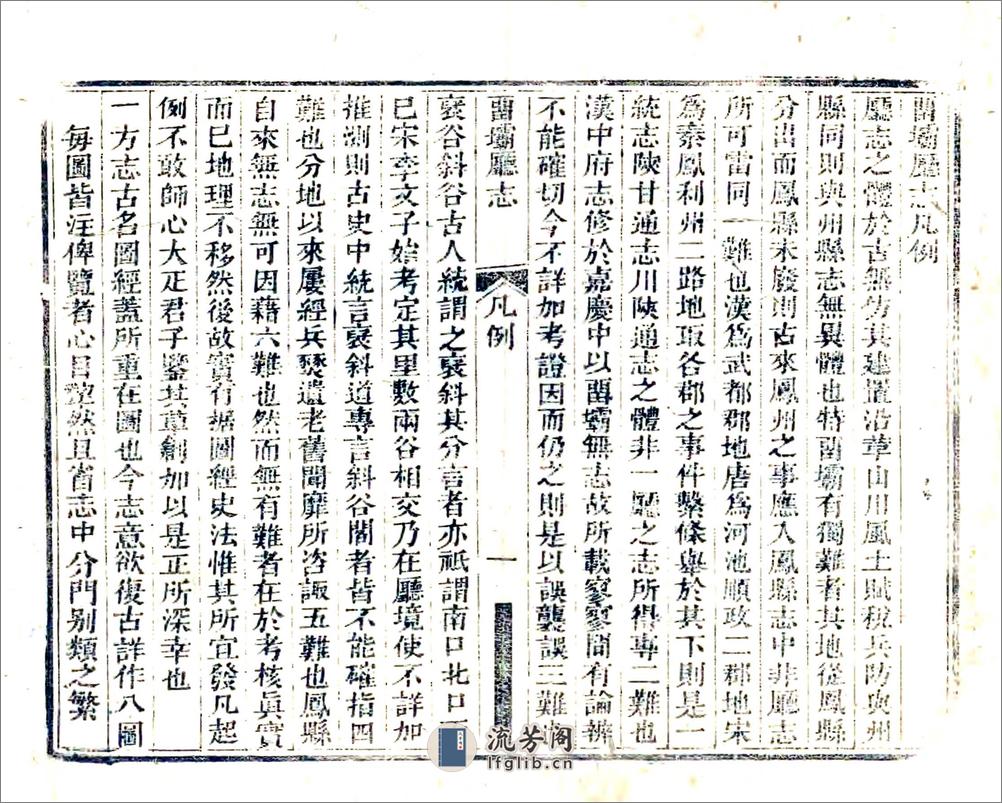 畱壩廳志凡例
廳志之體於古無仿其建置沿革山川風土賦稅兵防與州
縣同則與州縣志無異體也特畱壩有獨難者其地從鳳縣
分出而鳳縣未廢則古來鳳州之事應入鳳縣志中非廳志
所可雷同一難也漢為武都郡地唐為河池順政二郡地宋
為秦鳳利州二路地取各郡之事件繫條舉於其下則是一
統志陜甘通志川陜通志之體非一廳之志所得專二難也
漢中府志修於嘉慶中以畱壩無志故所載寥寥間有論辨
不能確切今不詳加考證因而仍之則是以誤襲誤三難也
畱壩廳志
凡例
一
襃谷斜谷古人統謂之襃斜其分言者亦祇謂南口北口而
已宋李文子始考定其里數兩谷相交乃在廳境使不詳加
推測則古史中統言襃斜道專言斜谷閣者皆不能確指四
難也分地以來屢經兵燹遺老舊聞靡所咨諏五難也鳳縣
自來無志無可因藉六難也然而無有難者在於考核眞實
而已地理不移然後故實有據圖經史法惟其所宜發凡起
例不敢師心大疋君子鑒其草創加以是正所深幸也
一方志古名圖經蓋所重在圖也今志意欲復古詳作八圖
每圖皆注俾覽者心目瞭然且省志中分門別類之繁
流芳阁
lfglib.cn